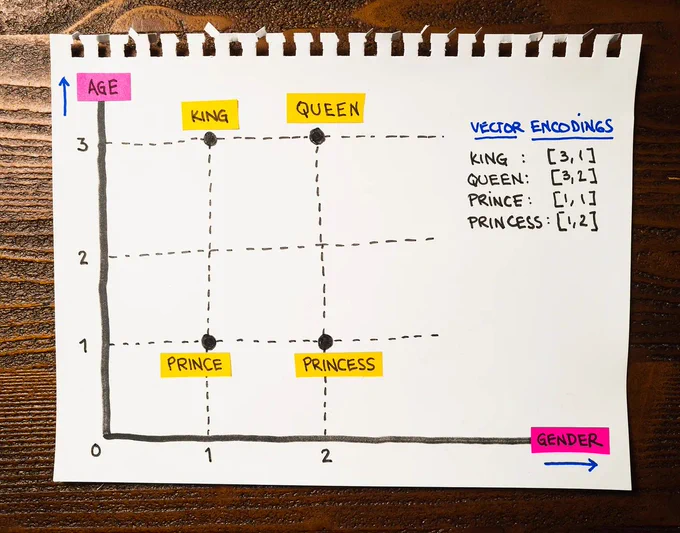 AGE
KING
QUEEN
VECTOR ENCODINGS
KING : [3,1]
QUEEN: [3,2]
PRINCE: [1,1]
PRINCESS: [1,2]
3
2
1
PRINCE
PRINCESS
GENDER
0
1
2